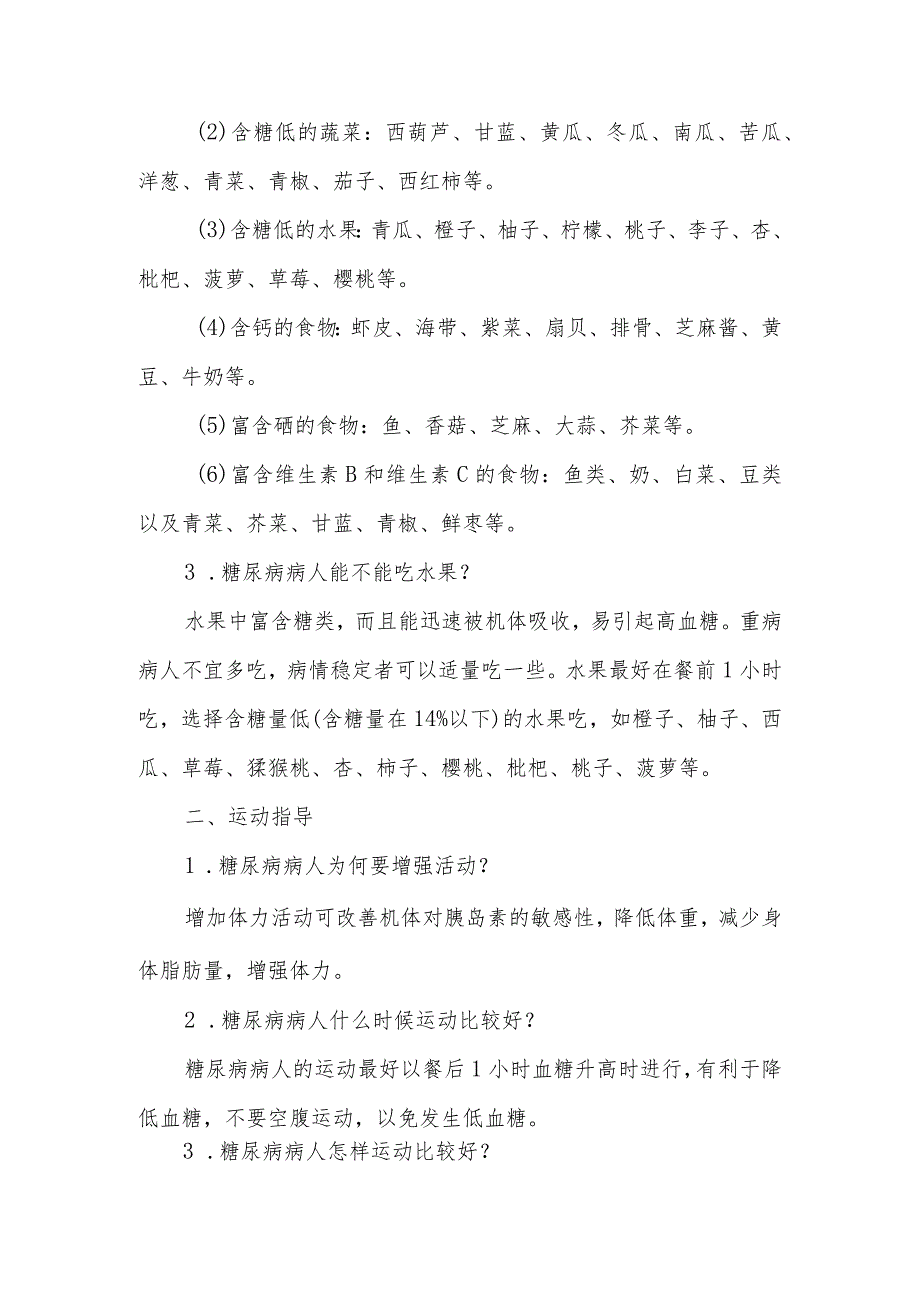 (2)含糖低的蔬菜：西葫芦、甘蓝、黄瓜、冬瓜、南瓜、苦瓜、
洋葱、青菜、青椒、茄子、西红柿等。
(3)含糖低的水果：青瓜、橙子、柚子、柠檬、桃子、李子、杏、
枇杷、菠萝、草莓、樱桃等。
(4)含钙的食物：虾皮、海带、紫菜、扇贝、排骨、芝麻酱、黄
豆、牛奶等。
(5)富含硒的食物：鱼、香菇、芝麻、大蒜、芥菜等。
(6)富含维生素 B 和维生素 C 的食物：鱼类、奶、白菜、豆类
以及青菜、芥菜、甘蓝、青椒、鲜枣等。
3 .糖尿病病人能不能吃水果？
水果中富含糖类，而且能迅速被机体吸收，易引起高血糖。重病
病人不宜多吃，病情稳定者可以适量吃一些。水果最好在餐前 1 小时
吃，选择含糖量低(含糖量在 14%以下)的水果吃，如橙子、柚子、西
瓜、草莓、猕猴桃、杏、柿子、樱桃、枇杷、桃子、菠萝等。
二、运动指导
1 .糖尿病病人为何要增强活动？
增加体力活动可改善机体对胰岛素的敏感性，降低体重，减少身
体脂肪量，增强体力。
2 .糖尿病病人什么时候运动比较好？
糖尿病病人的运动最好以餐后 1 小时血糖升高时进行，有利于降
低血糖，不要空腹运动，以免发生低血糖。
3 .糖尿病病人怎样运动比较好？